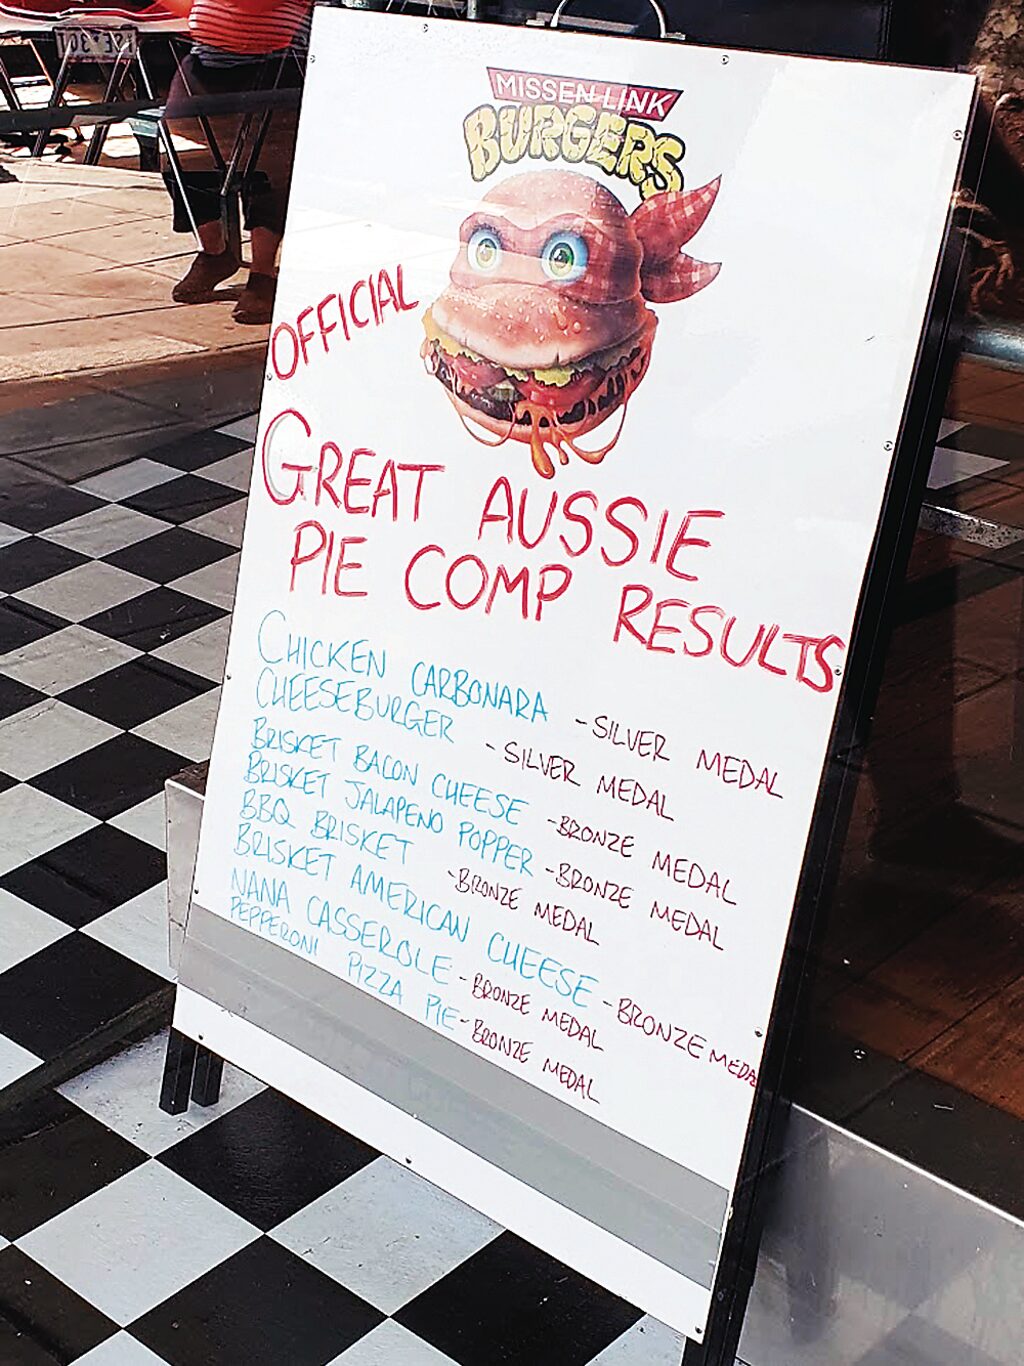 MISSEN-LINK
BURGERS
OFFICIAL
GREAT AUSSIE
PIE COMP RESULTS
CHICKEN CARBONARA - SILVER MEDAL
CHEESEBURGER - SILVER MEDAL
BRISKET BACON CHEESE - BRONZE MEDAL
BRISKET JALAPENO POPPER - BRONZE MEDAL
BBQ BRISKET - BRONZE MEDAL
BRISKET AMERICAN CHEESE - BRONZE MEDAL
NANA CASSEROLE - BRONZE MEDAL
PEPPERONI PIZZA PIE - BRONZE MEDAL